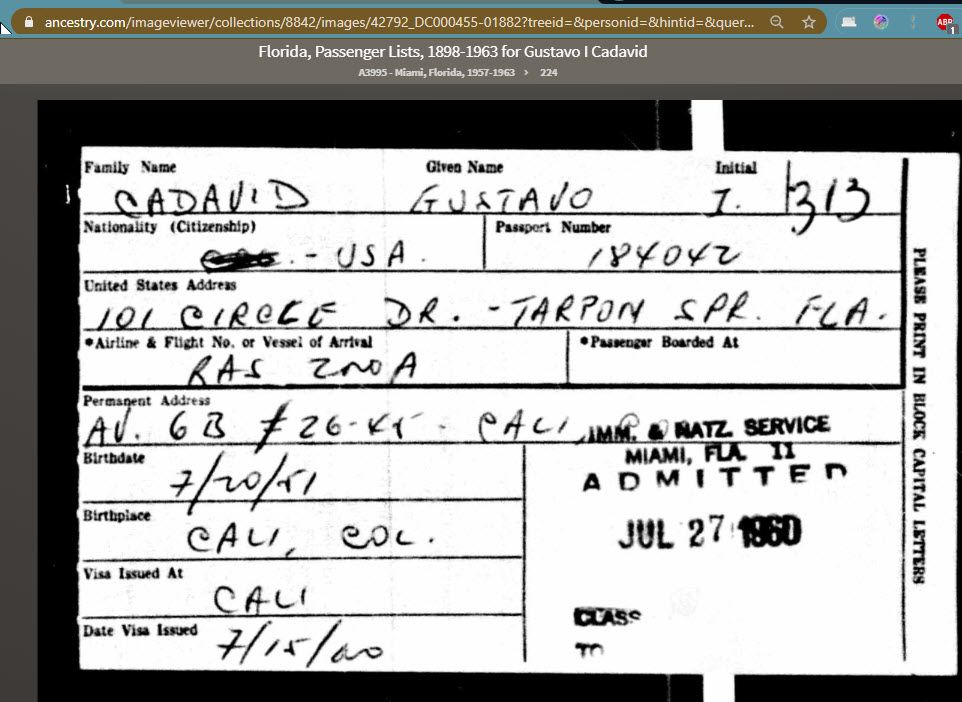 ancestry.com/imageviewer/collections/8842/images/42792_DC000455-01882?treeid=&personid=&hintid=&quer...
ABP
1
Florida, Passenger Lists, 1898-1963 for Gustavo I Cadavid
A3995 - Miami, Florida, 1957-1963 > 224
Family Name Given Name Initial
CADAVID GUSTAVO I. 313
Nationality (Citizenship) Passport Number
- USA. 184042
United States Address
101 CIRCLE DR. - TARPON SPR. FLA.
•Airline & Flight No. or Vessel of Arrival •Passenger Boarded At
RAS 200A
Permanent Address
AV. 6B # 26-45 - CALI
IMM. & NATZ. SERVICE
MIAMI, FLA. 11
ADMITTED
JUL 27 1960
CLASS
TO
Birthdate
7/20/51
Birthplace
CALI, COL.
Visa Issued At
CALI
Date Visa Issued
7/15/60
PLEASE PRINT IN BLOCK CAPITAL LETTERS